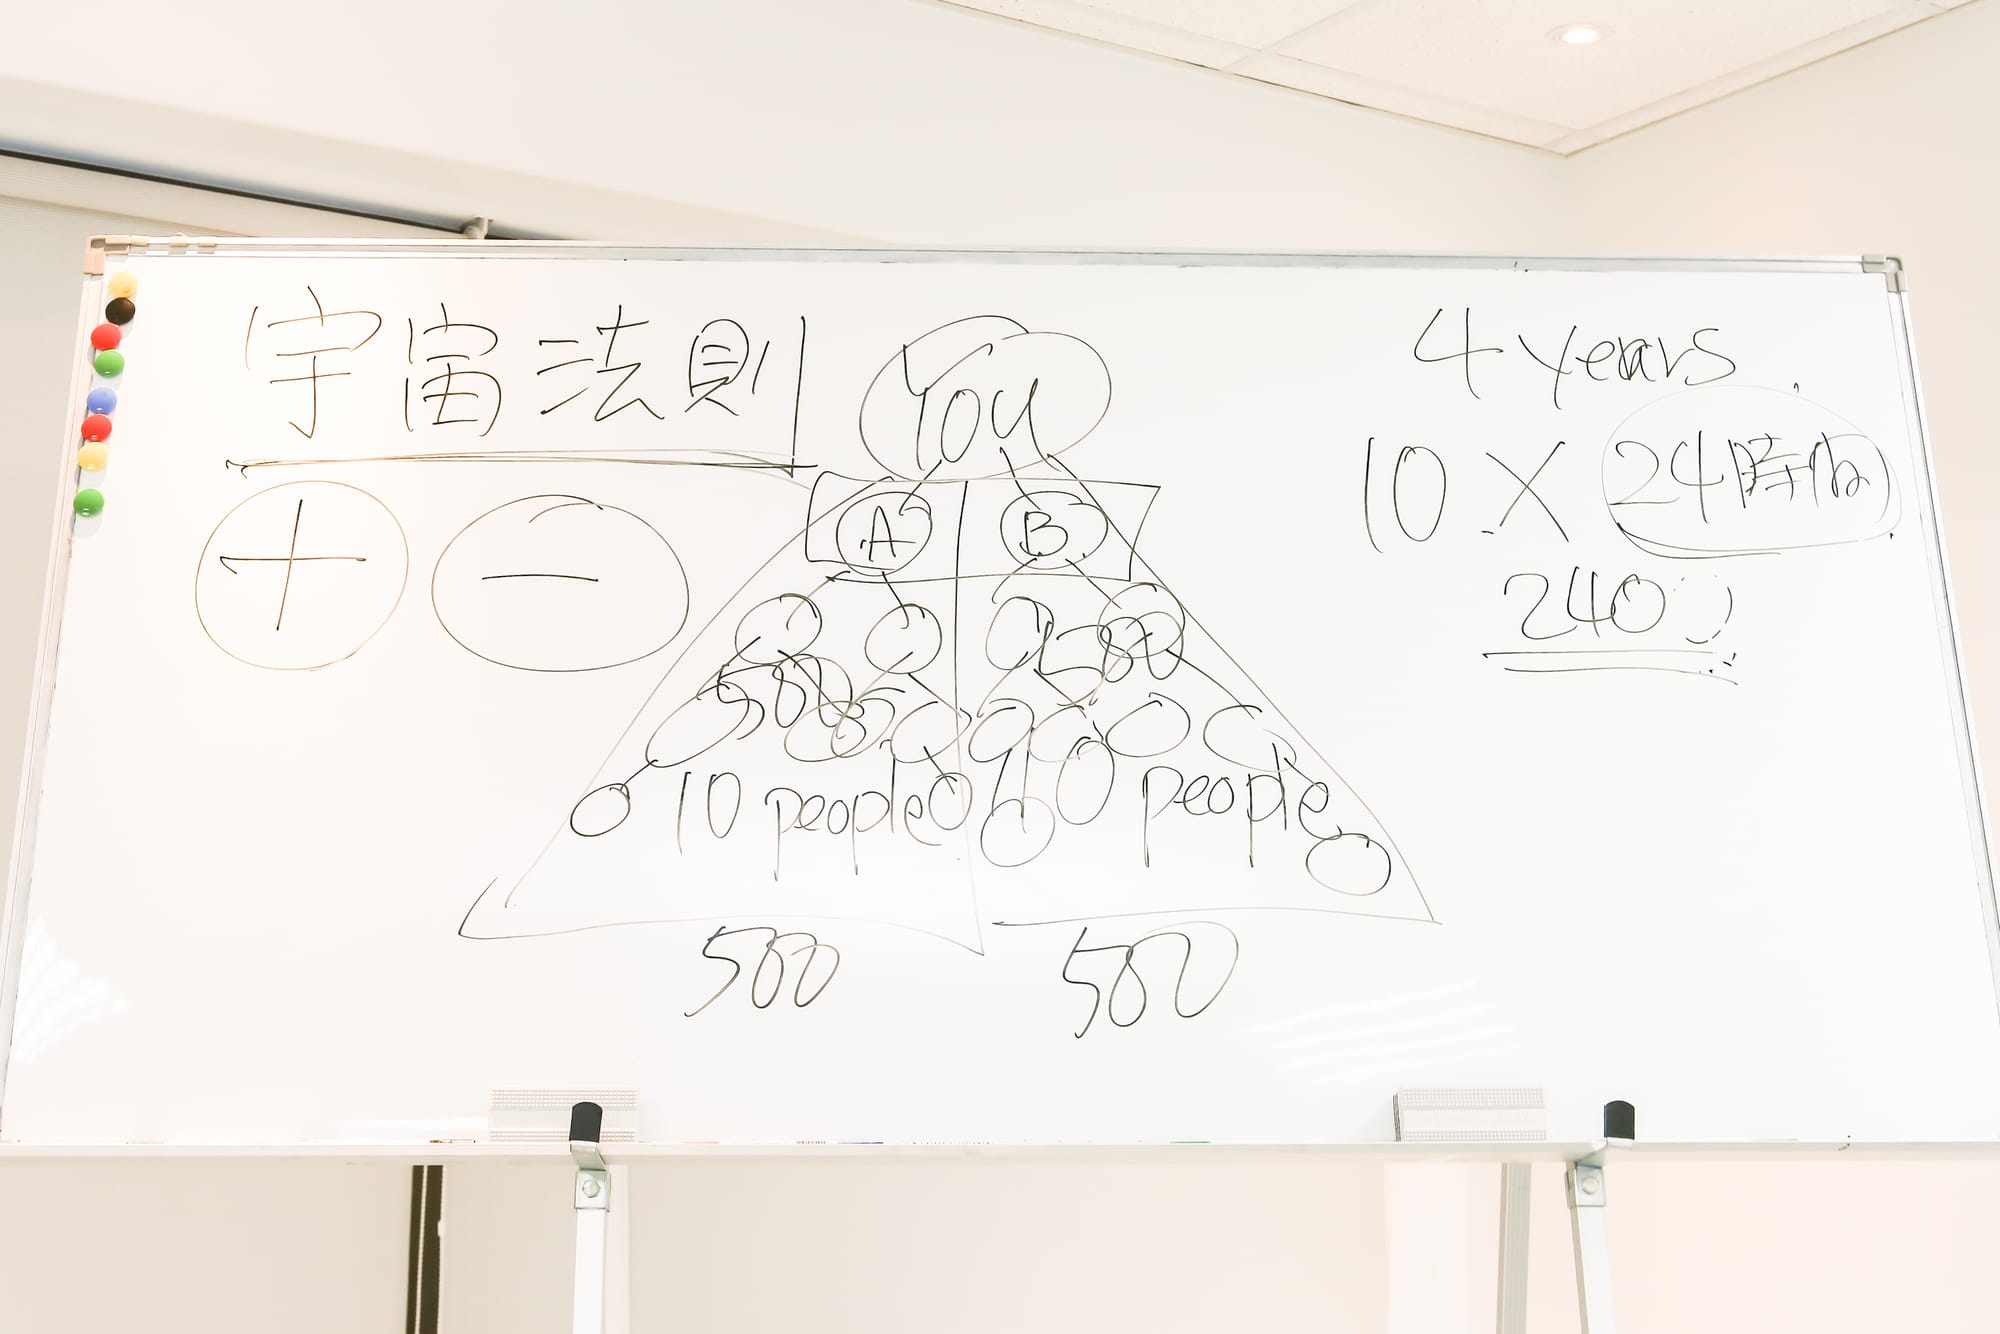 宇宙法則
+ −
You
A B
500 500
10 people 10 people
500 500
4 years
10 × 24時間
240